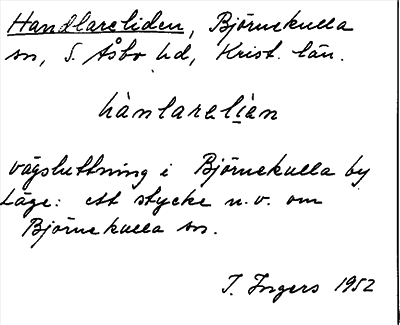 Handlareliden, Björnekulla
sn, S. Åsbo hd, Krist. län.
hànlarelìan
vägsluttning i Björnekulla by
Läge: ett stycke n.v. om
Björnekulla sn.
I. Ingers 1952